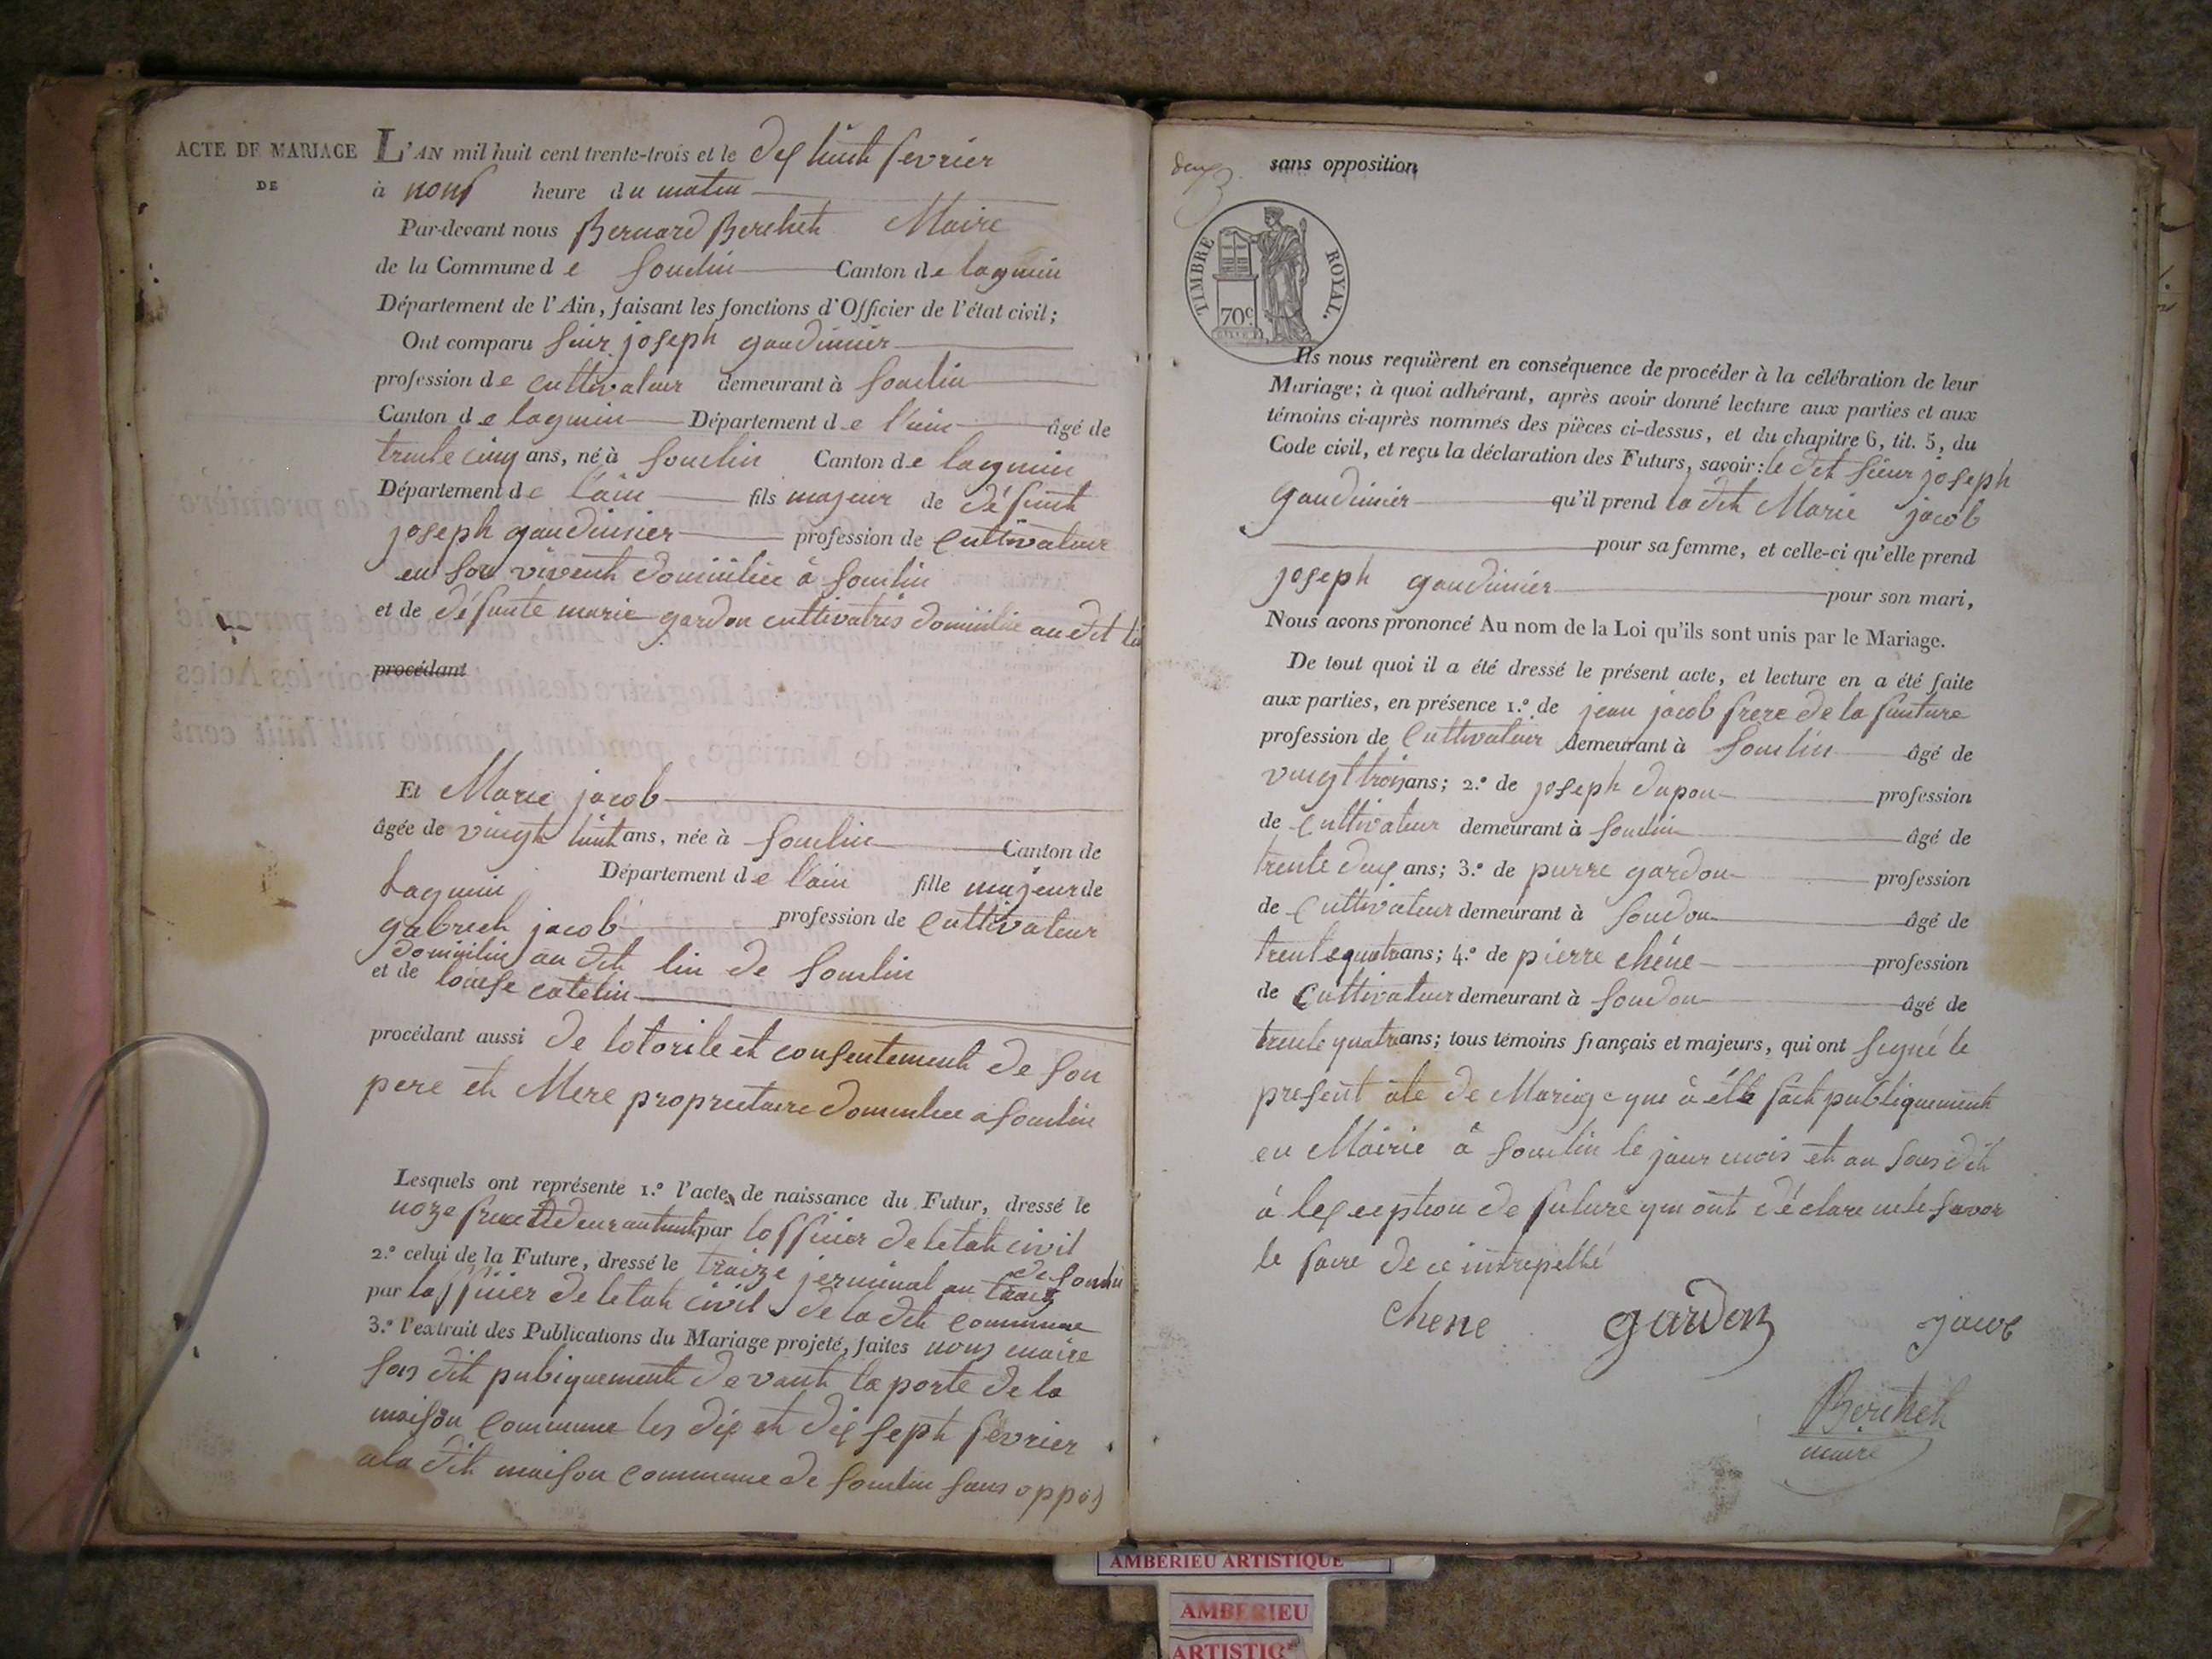 ACTE DE MARIAGE
DE
L'AN mil huit cent trente-trois et le dix huit fevrier
à nonf heure du matin
Par-devant nous Bernard Berchet Maire
de la Commune de Souclin Canton de lagnieu
Département de l'Ain, faisant les fonctions d'Officier de l'état civil;
Ont comparu sieur joseph gaudinier
profession de cultivateur demeurant à Souclin
Canton de lagnieu Département de l'ain âgé de
trente cinq ans, né à Souclin Canton de lagnieu
Département de l'ain fils majeur de défunt
joseph gaudinier profession de cultivateur
en son vivent domicilié à Souclin
et de défunte marie gardon cultivatris domicilié au dit
procédant
Et Marie jacob
âgée de vingt huit ans, née à Souclin Canton de
Lagnieu Département de l'ain fille majeur de
gabrieh jacob profession de cultivateur
domicilié au dit lieu de Souclin
et de louise catelin
procédant aussi de lotorite et consentement de son
pere et Mere proprietaire domicilié a Souclin
Lesquels ont représenté 1.º l'acte de naissance du Futur, dressé le
par lofficier de letat civil
de Souclin
2.º celui de la Future, dressé le traize jerminal an
par lofficier de letat civil de la dit commune
3.º l'extrait des Publications du Mariage projeté, faites nous maire
sus dit pubiquement devant la porte de la
maison commune les dix et dix sept fevrier
ala dit maison commune de Souclin sans oppos
deux
sans opposition
TIMBRE ROYAL.
70c
Ils nous requièrent en conséquence de procéder à la célébration de leur
Mariage; à quoi adhérant, après avoir donné lecture aux parties et aux
témoins ci-après nommés des pièces ci-dessus, et du chapitre 6, tit. 5, du
Code civil, et reçu la déclaration des Futurs, savoir: le dit sieur joseph
gaudinier qu'il prend la dit Marie jacob
pour sa femme, et celle-ci qu'elle prend
joseph gaudinier pour son mari,
Nous avons prononcé Au nom de la Loi qu'ils sont unis par le Mariage.
De tout quoi il a été dressé le présent acte, et lecture en a été faite
aux parties, en présence 1.º de jean jacob frere de la future
profession de Cultivateur demeurant à Souclin âgé de
vingt trois ans; 2.º de joseph dupon profession
de Cultivateur demeurant à Souclin âgé de
trente deux ans; 3.º de pierre gardon profession
de Cultivateur demeurant à Soudon âgé de
trente quatre ans; 4.º de pierre chéne profession
de Cultivateur demeurant à Soudon âgé de
trente quatre ans; tous témoins français et majeurs, qui ont signé le
present ate de Mariage que a été fait publiquement
en Mairie à Souclin le jour mois et an sus dit
à lexception de future qui ont déclare ne le savoir
le faire de ce intrepellé
Chene gardon jacob
Berchet
maire
AMBERIEU ARTISTIQUE
AMBERIEU